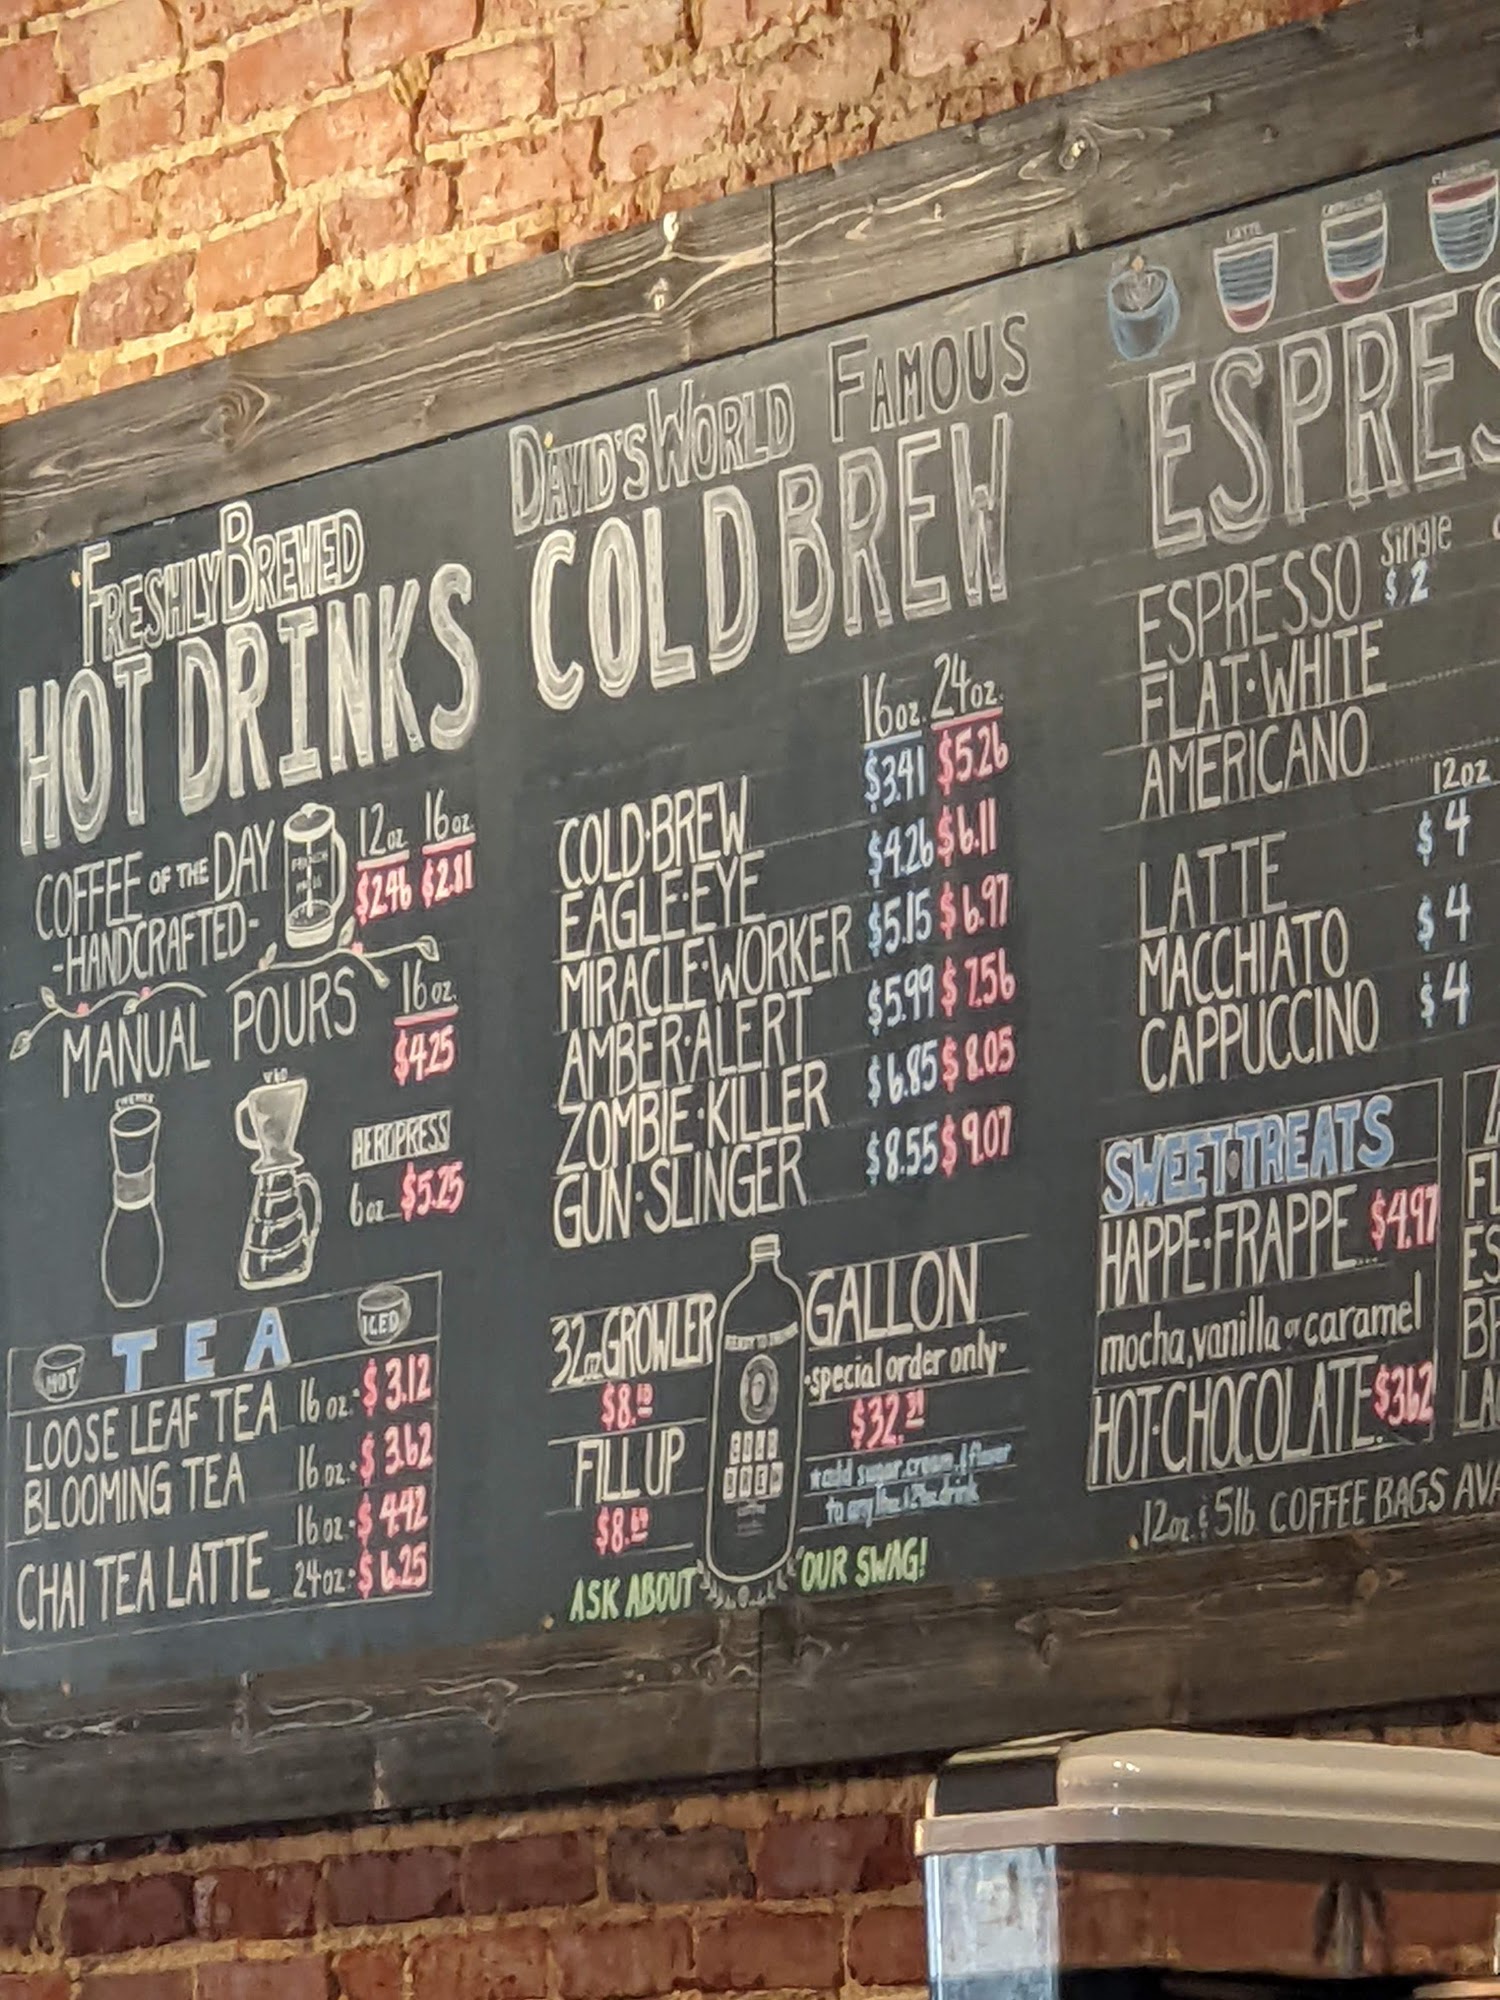 FRESHLY BREWED
HOT DRINKS
12oz. 16oz.
COFFEE OF THE DAY $2.46 $2.81
-HANDCRAFTED-
FRENCH
PRESS
MANUAL POURS 16oz.
$4.25
CHEMEX
V60
AEROPRESS
6oz $5.25
TEA
HOT
ICED
LOOSE LEAF TEA 16oz. $3.12
BLOOMING TEA 16oz. $3.62
16oz. $4.42
CHAI TEA LATTE 24oz. $6.25
DAVID'S WORLD FAMOUS
COLD BREW
16oz. 24oz.
COLD·BREW $3.41 $5.26
EAGLE·EYE $4.26 $6.11
MIRACLE·WORKER $5.15 $6.97
AMBER·ALERT $5.99 $7.56
ZOMBIE·KILLER $6.85 $8.05
GUN·SLINGER $8.55 $9.07
32oz GROWLER
FILL UP
READY TO DRINK
COLD
BREW
GALLON
·special order only·
*add sugar, cream, flavor
ASK ABOUT OUR SWAG!
LATTE
CAPPUCCINO
MACCHIATO
ESPRES
single
ESPRESSO $2
FLAT·WHITE
AMERICANO
12oz
LATTE $4
MACCHIATO $4
CAPPUCCINO $4
SWEET·TREATS
HAPPE·FRAPPE... $4.97
mocha, vanilla or caramel
HOT·CHOCOLATE. $3.62
12oz. & 5lb COFFEE BAGS AVA